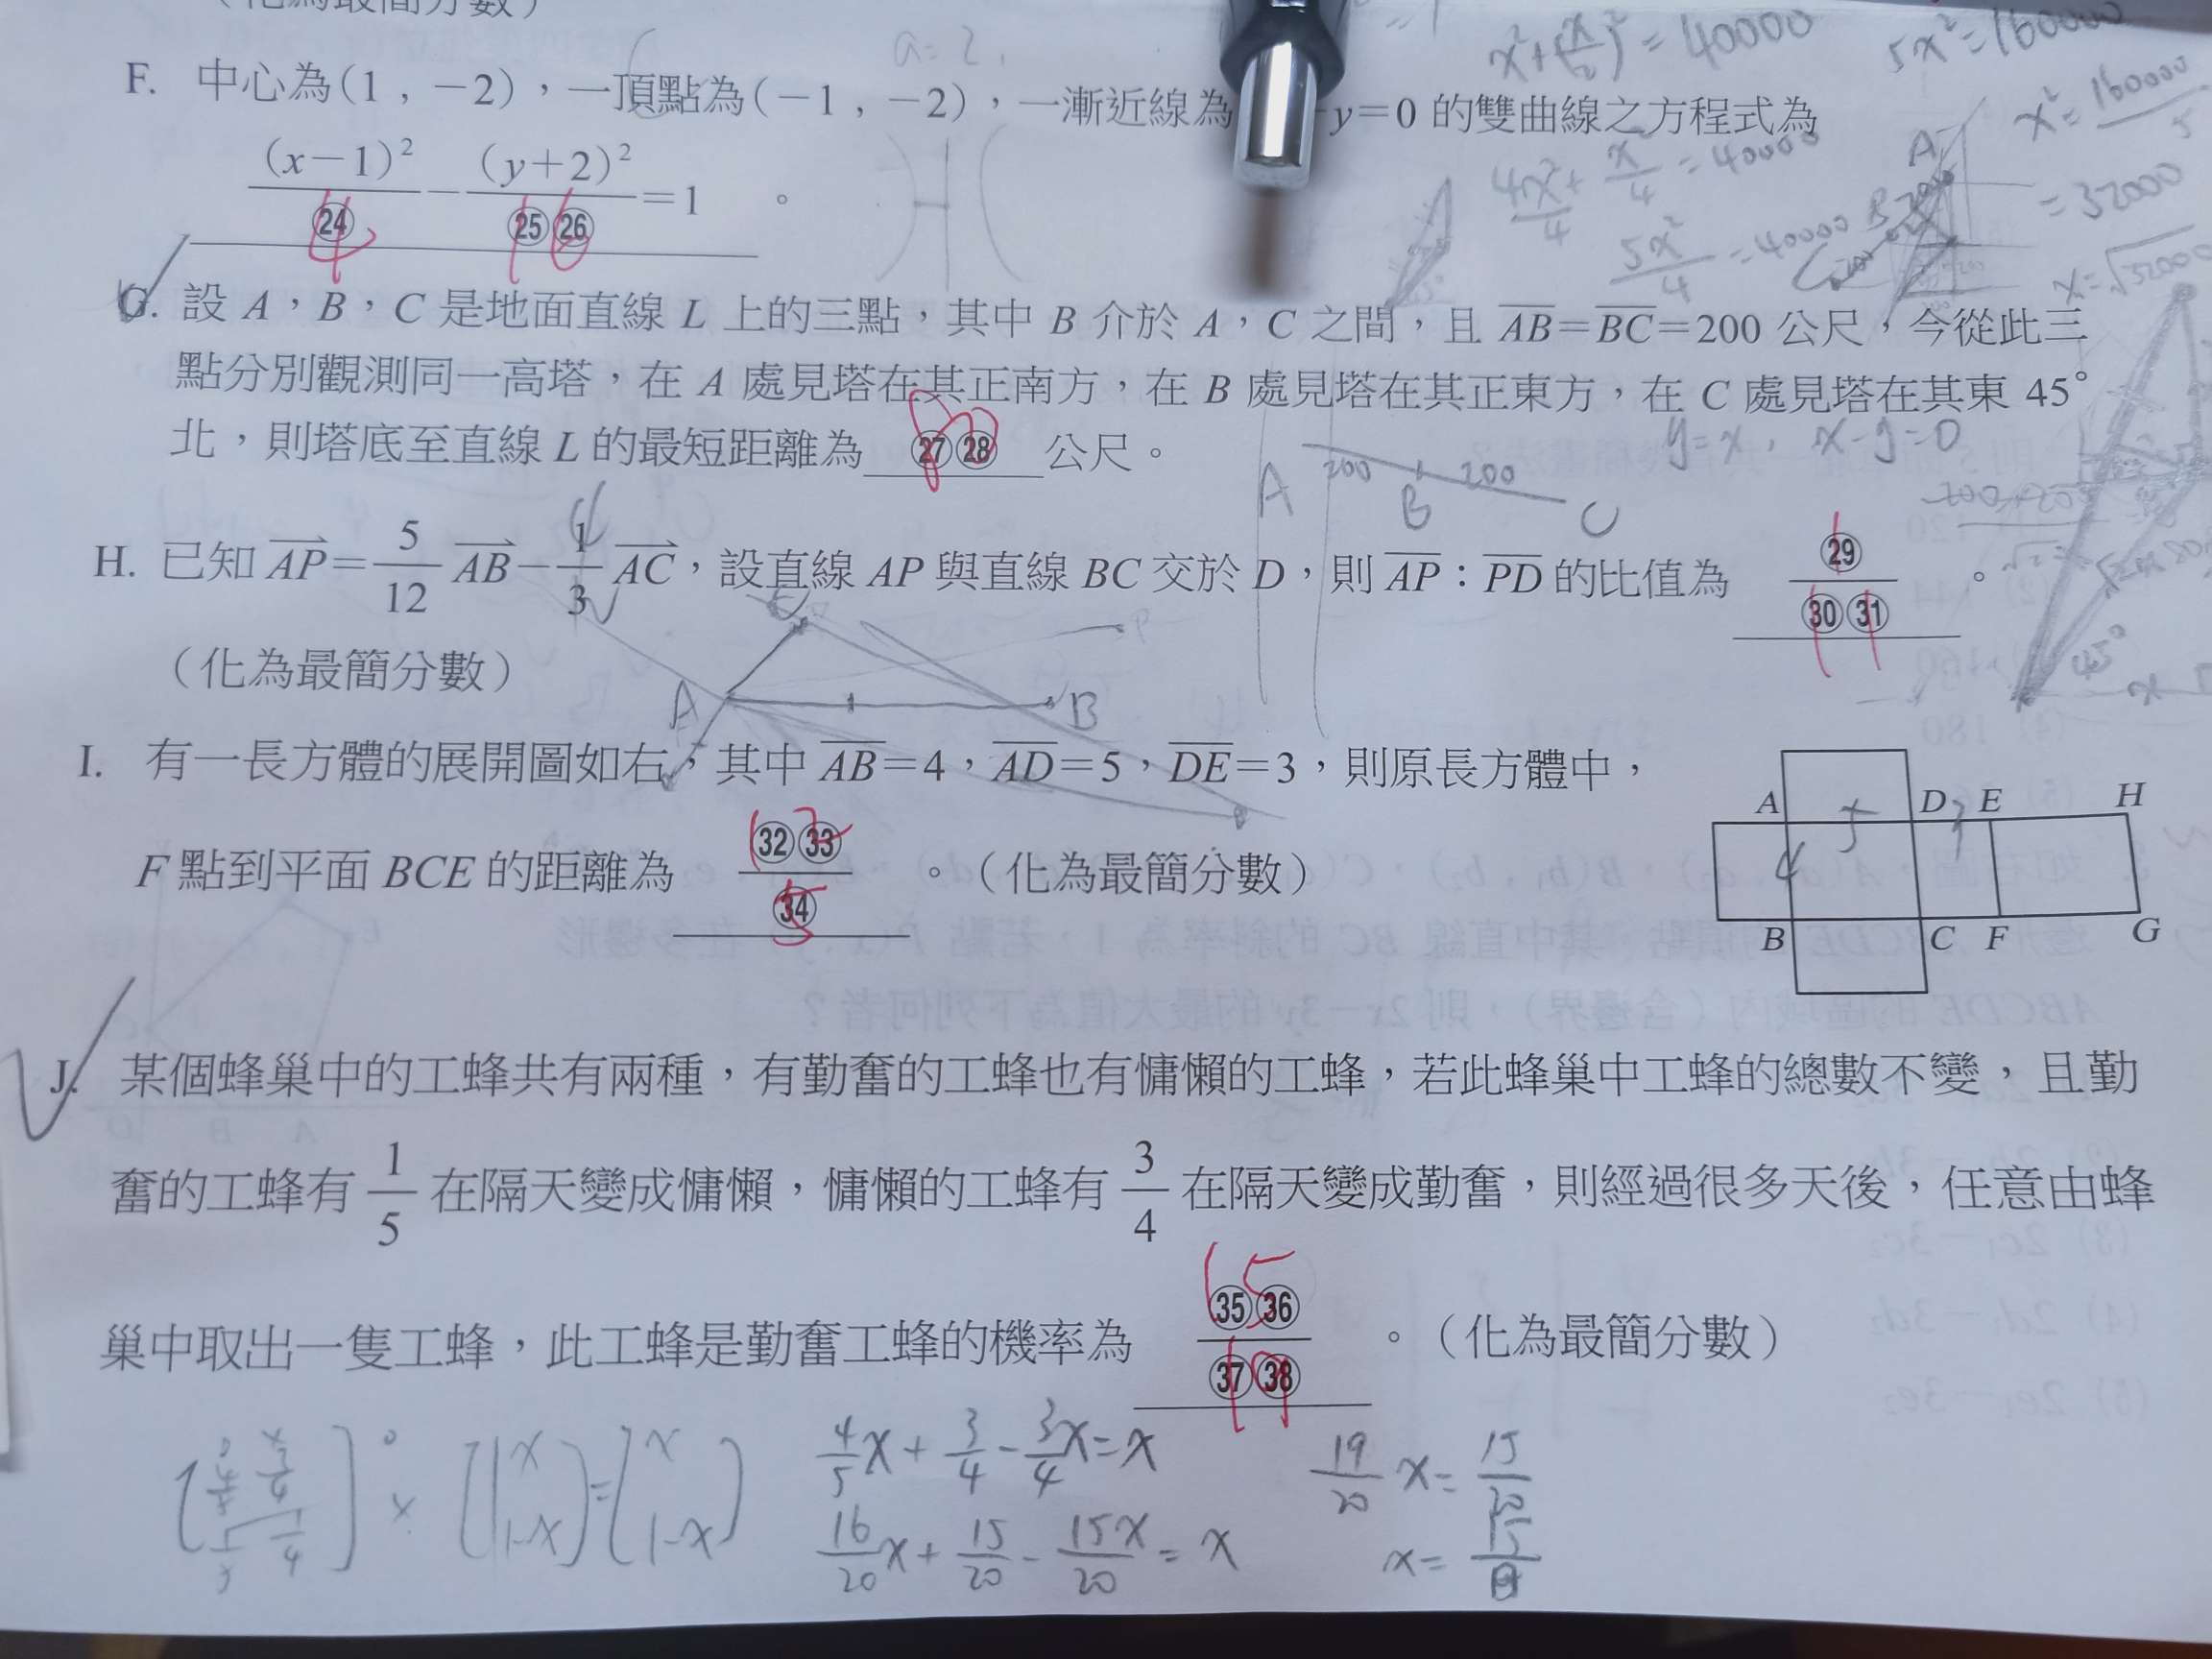 (化為最簡分數)
a=2,
x²+(x/2)²=40000
5x²=160000
F. 中心為(1,-2),一頂點為(-1,-2),一漸近線為 y=0 的雙曲線之方程式為
x²=160000/5
(x-1)²/㉔ - (y+2)²/㉕㉖ =1 。
4 1 6
4x²/4+x²/4=40000
=32000
5x²/4=40000
x=√32000
A B C
G. 設 A,B,C 是地面直線 L 上的三點,其中 B 介於 A,C 之間,且 AB=BC=200 公尺,今從此三
點分別觀測同一高塔,在 A 處見塔在其正南方,在 B 處見塔在其正東方,在 C 處見塔在其東 45°
北,則塔底至直線 L 的最短距離為 ㉗㉘ 公尺。
y=x, x-y=0
A 200 B 200 C
H. 已知 AP=5/12 AB-1/3 AC,設直線 AP 與直線 BC 交於 D,則 AP:PD 的比值為 ㉙/㉚㉛ 。
1 1 1
(化為最簡分數)
45°
A B C P
I. 有一長方體的展開圖如右,其中 AB=4,AD=5,DE=3,則原長方體中,
F 點到平面 BCE 的距離為 ㉜㉝/㉞ 。(化為最簡分數)
1 2 5
A D E H
5 4 3
B C F G
J. 某個蜂巢中的工蜂共有兩種,有勤奮的工蜂也有慵懶的工蜂,若此蜂巢中工蜂的總數不變,且勤
奮的工蜂有 1/5 在隔天變成慵懶,慵懶的工蜂有 3/4 在隔天變成勤奮,則經過很多天後,任意由蜂
巢中取出一隻工蜂,此工蜂是勤奮工蜂的機率為 ㉟㊱/㊲㊳ 。(化為最簡分數)
1 5 1 9
[4/5 3/4 1/5 1/4] [x 1-x]=[x 1-x]
4/5x+3/4-3/4x=x
19/20 x=15/20
16/20x+15/20-15x/20=x
x=15/19